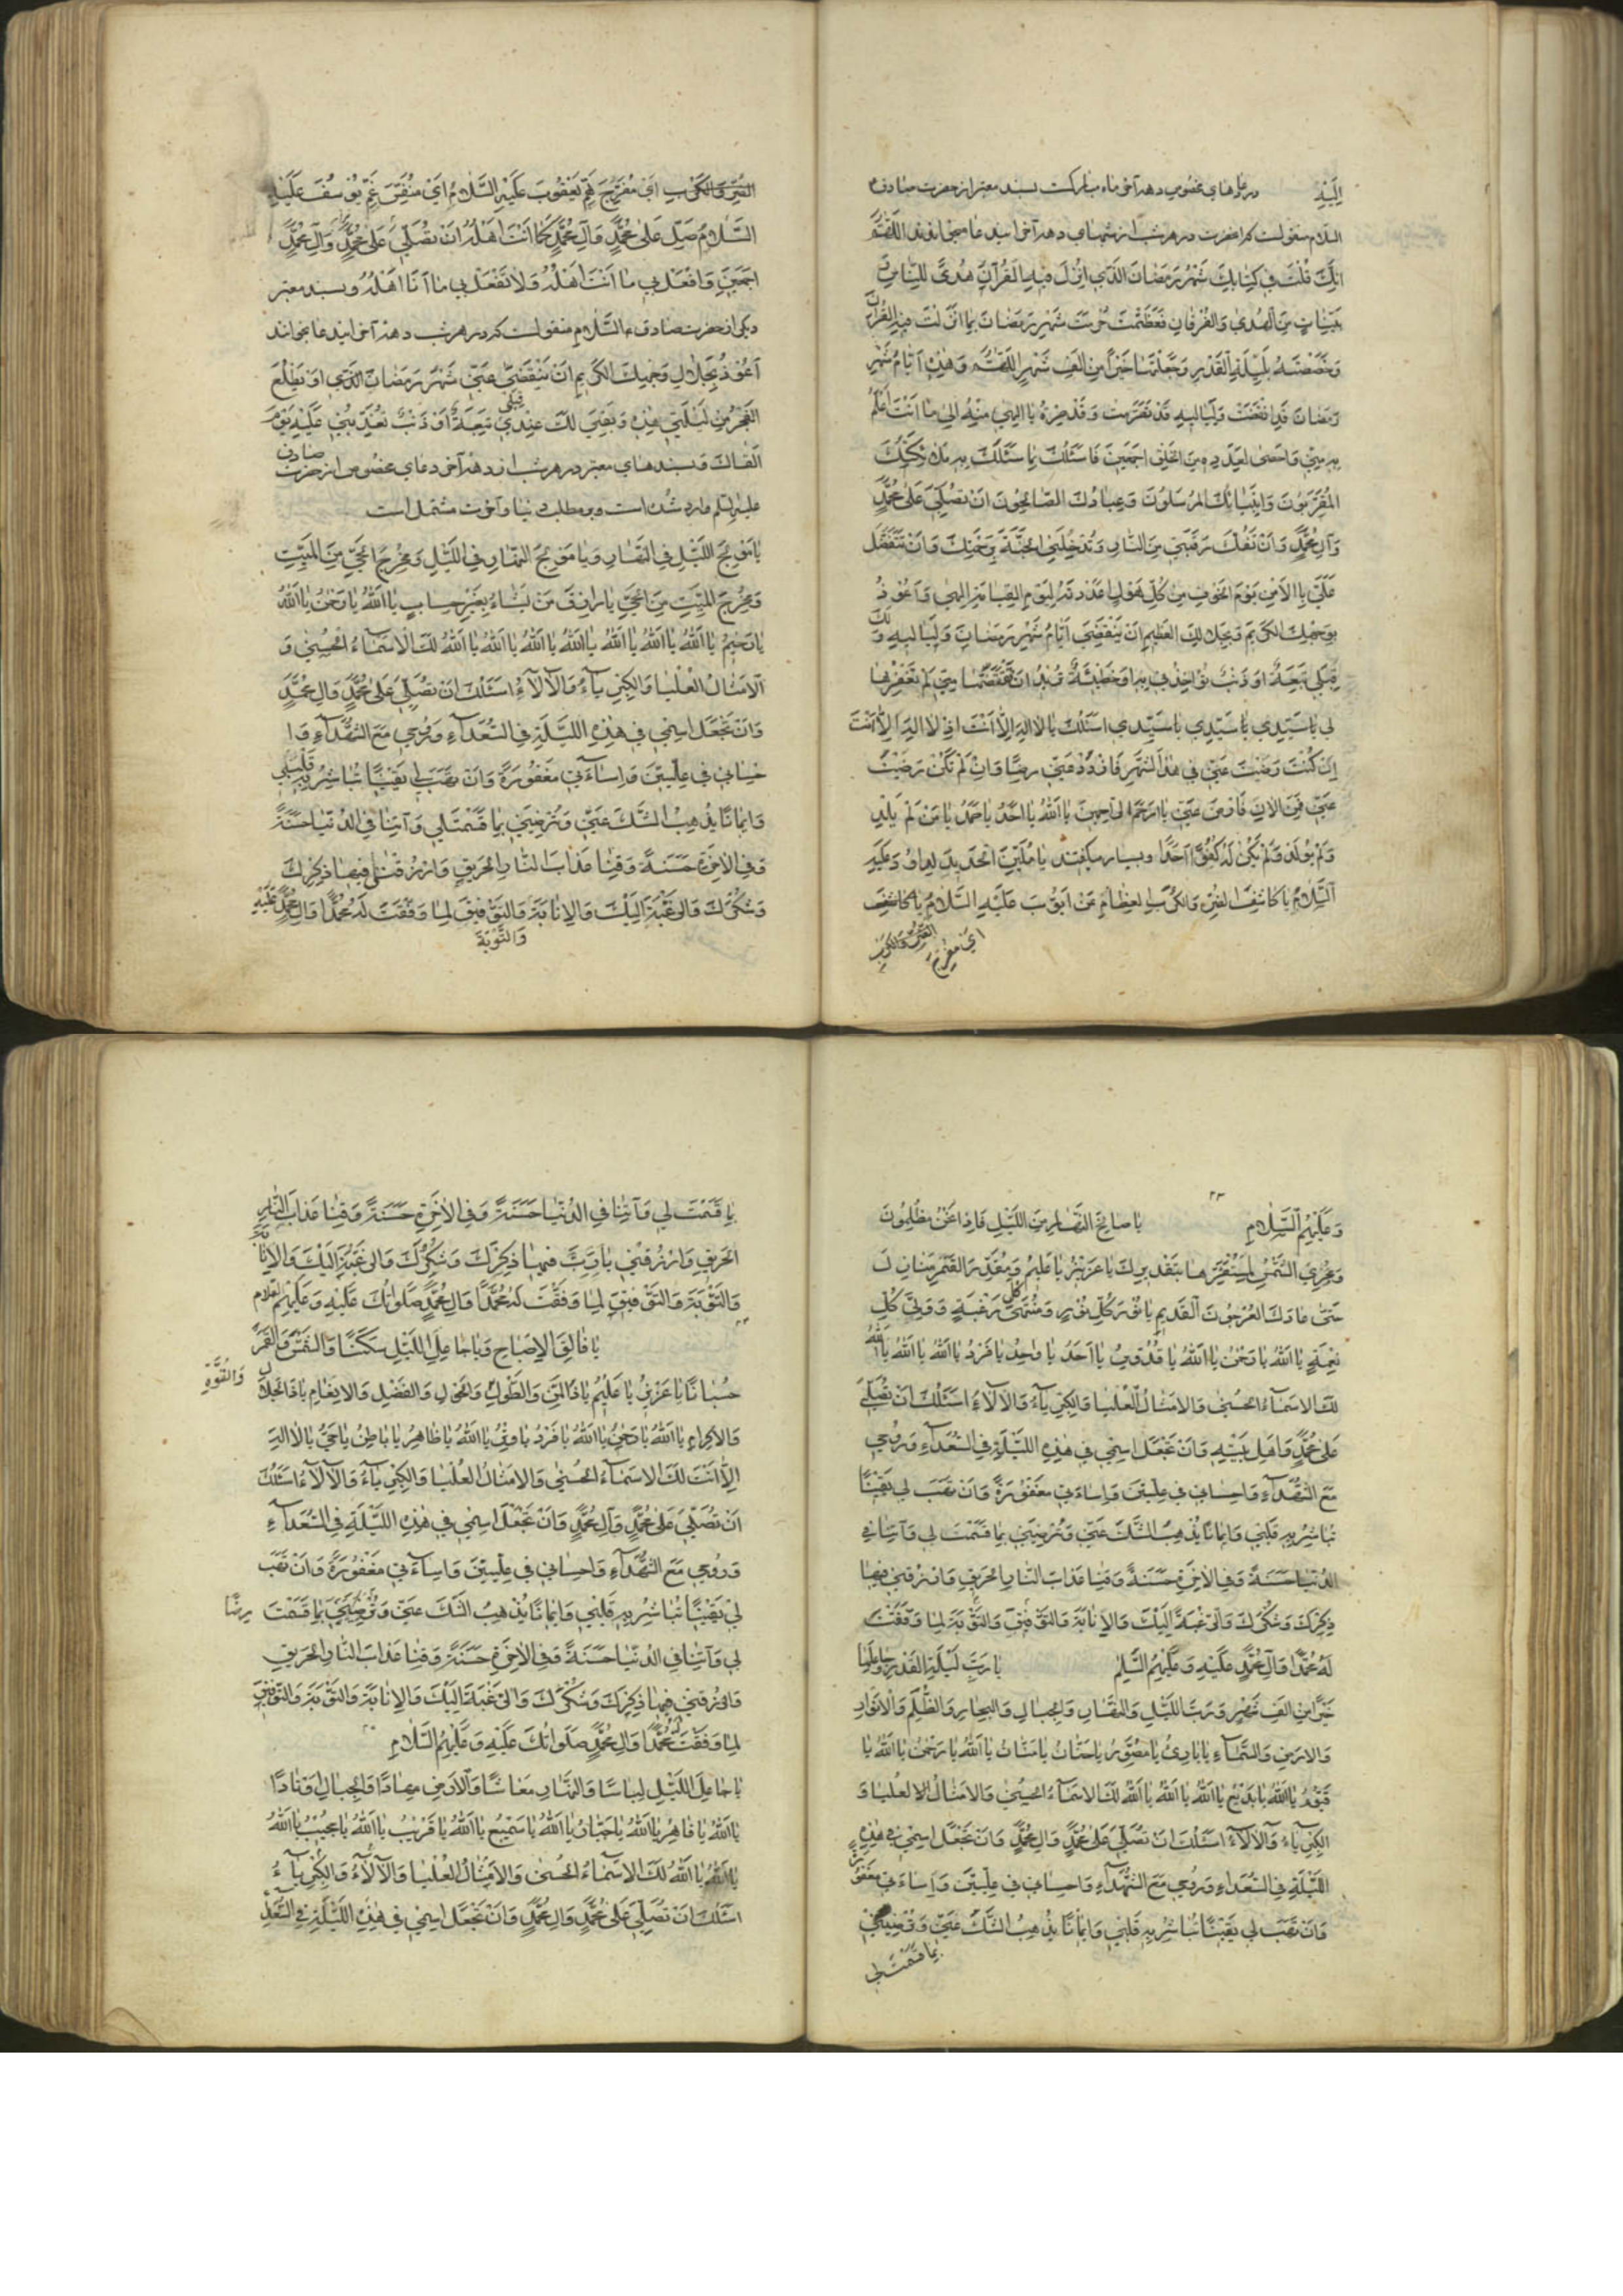 اِلَيْهِ در دعاهای مخصوص دهه آخر ماه مبارکست بسند معتبر از حضرت صادق ع
السلام منقول است که آنحضرت در هر شب از شبهای دهه آخر این دعا میخواندند اللّهُمَّ
اِنَّكَ قُلْتَ فِي كِتَابِكَ شَهْرُ رَمَضَانَ الَّذِي اُنْزِلَ فِيهِ الْقُرْآنُ هُدًى لِلنَّاسِ وَ
بَيِّنَاتٍ مِنَ الْهُدَى وَالْفُرْقَانِ فَعَظَّمْتَ حُرْمَتَ شَهْرِ رَمَضَانَ بِمَا اَنْزَلْتَ فِيهِ الْقُرْآنَ
وَخَصَصْتَهُ بِلَيْلَةِ الْقَدْرِ وَجَعَلْتَهَا خَيْرًا مِنْ اَلْفِ شَهْرٍ اللّهُمَّ وَهَذِهِ اَيَّامُ شَهْرِ
رَمَضَانَ قَدِ انْقَضَتْ وَلَيَالِيهِ قَدْ تَصَرَّمَتْ وَقَدْ صِرْتُ يَا اِلهِي مِنْهُ اِلى مَا اَنْتَ اَعْلَمُ
بِهِ مِنِّي وَاَحْصى لِعَدَدِهِ مِنَ الْخَلْقِ اَجْمَعِينَ فَاَسْئَلُكَ بِمَا سَئَلَكَ بِهِ مَلائِكَتُكَ
الْمُقَرَّبُونَ وَاَنْبِيَائُكَ الْمُرْسَلُونَ وَعِبَادُكَ الصَّالِحُونَ اَنْ تُصَلِّيَ عَلى مُحَمَّدٍ
وَآلِ مُحَمَّدٍ وَاَنْ تَفُكَّ رَقَبَتِي مِنَ النَّارِ وَتُدْخِلَنِي الْجَنَّةَ بِرَحْمَتِكَ وَاَنْ تَتَفَضَّلَ
عَلَيَّ بِالاَمْنِ يَوْمَ الْخَوْفِ مِنْ كُلِّ هَوْلٍ اَعْدَدْتَهُ لِيَوْمِ الْقِيَامَةِ اِلهِي وَاَعُوذُ
بِوَجْهِكَ الْكَرِيمِ وَبِجَلالِكَ الْعَظِيمِ اَنْ يَنْقَضِيَ اَيَّامُ شَهْرِ رَمَضَانَ وَلَيَالِيهِ وَلَكَ
قِبَلِي تَبِعَةٌ اَوْ ذَنْبٌ تُؤَاخِذُنِي بِهِ اَوْ خَطِيئَةٌ تُرِيدُ اَنْ تَقْتَصَّهَا مِنِّي لَمْ تَغْفِرْهَا
لِي يَا سَيِّدِي يَا سَيِّدِي يَا سَيِّدِي اَسْئَلُكَ يَا لا اِلهَ اِلاّ اَنْتَ اِذْ لا اِلهَ اِلاّ اَنْتَ
اِنْ كُنْتَ رَضِيتَ عَنِّي فِي هَذَا الشَّهْرِ فَازْدَدْ عَنِّي رِضًا وَاِنْ لَمْ تَكُنْ رَضِيتَ
عَنِّي فَمِنَ الآنَ فَارْضَ عَنِّي يَا اَرْحَمَ الرَّاحِمِينَ يَا اَللّهُ يَا اَحَدُ يَا صَمَدُ يَا مَنْ لَمْ يَلِدْ
وَلَمْ يُولَدْ وَلَمْ يَكُنْ لَهُ كُفُوًا اَحَدٌ و بسیار میگفتند يَا مُلَيِّنَ الْحَدِيدِ لِدَاوُدَ عَلَيْهِ
السَّلامُ يَا كَاشِفَ الضُّرِّ وَالْكُرَبِ الْعِظَامِ عَنْ اَيُّوبَ عَلَيْهِ السَّلامُ يَا كَاشِفَ
الضُّرِّ وَالْكَرْبِ اَيْ مُفَرِّجَ
الضُّرِّ وَالْكَرْبِ اَيْ مُفَرِّجَ هَمِّ يَعْقُوبَ عَلَيْهِ السَّلامُ اَيْ مُنَفِّسَ غَمِّ يُوسُفَ عَلَيْهِ
السَّلامُ صَلِّ عَلى مُحَمَّدٍ وَآلِ مُحَمَّدٍ كَمَا اَنْتَ اَهْلُهُ اَنْ تُصَلِّيَ عَلى مُحَمَّدٍ وَآلِ مُحَمَّدٍ
اَجْمَعِينَ وَافْعَلْ بِي مَا اَنْتَ اَهْلُهُ وَلا تَفْعَلْ بِي مَا اَنَا اَهْلُهُ و بسند معتبر
دیگر از حضرت صادق ع السَّلام منقولست که در هر شب دهه آخر این دعا بخواند
اَعُوذُ بِجَلالِ وَجْهِكَ الْكَرِيمِ اَنْ يَنْقَضِيَ عَنِّي شَهْرُ رَمَضَانَ الَّذِي اَوْ يَطْلُعَ
الْفَجْرُ مِنْ لَيْلَتِي هذِهِ وَبَقِيَ لَكَ عِنْدِي قِبَلِي تَبِعَةٌ اَوْ ذَنْبٌ تُعَذِّبُنِي عَلَيْهِ يَوْمَ
اَلْقَاكَ و بسندهای معتبر در هر شب از دهه آخر دعای مخصوص از حضرت صادق
علیه السلم وارد شده است و بر مطلب دنیا و آخرت مشتمل است
يَا مُولِجَ اللَّيْلِ فِي النَّهَارِ وَيَا مُولِجَ النَّهَارِ فِي اللَّيْلِ وَمُخْرِجَ الْحَيِّ مِنَ الْمَيِّتِ
وَمُخْرِجَ الْمَيِّتِ مِنَ الْحَيِّ يَا رَازِقَ مَنْ يَشَاءُ بِغَيْرِ حِسَابٍ يَا اَللّهُ يَا رَحْمنُ يَا اَللّهُ
يَا رَحِيمُ يَا اَللّهُ يَا اَللّهُ يَا اَللّهُ يَا اَللّهُ يَا اَللّهُ يَا اَللّهُ يَا اَللّهُ لَكَ الاَسْمَاءُ الْحُسْنى وَ
الاَمْثَالُ الْعُلْيَا وَالْكِبْرِيَاءُ وَالآلاءُ اَسْئَلُكَ اَنْ تُصَلِّيَ عَلى مُحَمَّدٍ وَآلِ مُحَمَّدٍ
وَاَنْ تَجْعَلَ اسْمِي فِي هذِهِ اللَّيْلَةِ فِي السُّعَدَاءِ وَرُوحِي مَعَ الشُّهَدَاءِ وَاِ
حْسَانِي فِي عِلِّيِّينَ وَاِسَاءَتِي مَغْفُورَةً وَاَنْ تَهَبَ لِي يَقِينًا تُبَاشِرُ بِهِ قَلْبِي
وَاِيمَانًا يُذْهِبُ الشَّكَّ عَنِّي وَتُرْضِيَنِي بِمَا قَسَمْتَ لِي وَآتِنَا فِي الدُّنْيَا حَسَنَةً
وَفِي الآخِرَةِ حَسَنَةً وَقِنَا عَذَابَ النَّارِ الْحَرِيقِ وَارْزُقْنِي فِيهَا ذِكْرَكَ
وَشُكْرَكَ وَالرَّغْبَةَ اِلَيْكَ وَالاِنَابَةَ وَالتَّوْفِيقَ لِمَا وَفَّقْتَ لَهُ مُحَمَّدًا وَآلَ مُحَمَّدٍ عَلَيْهِ
وَالتَّوْبَةَ
٢٢
وَعَلَيْهِمُ السَّلامُ يَا سَالِخَ النَّهَارِ مِنَ اللَّيْلِ فَاِذَا نَحْنُ مُظْلِمُونَ
وَمُجْرِيَ الشَّمْسِ لِمُسْتَقَرِّهَا بِتَقْدِيرِكَ يَا عَزِيزُ يَا عَلِيمُ وَمُقَدِّرَ الْقَمَرِ مَنَازِلَ
حَتّى عَادَ كَالْعُرْجُونِ الْقَدِيمِ يَا نُورَ كُلِّ نُورٍ وَمُنْتَهى كُلِّ رَغْبَةٍ وَوَلِيَّ كُلِّ
نِعْمَةٍ يَا اَللّهُ يَا رَحْمنُ يَا اَللّهُ يَا قُدُّوسُ يَا اَحَدُ يَا وَاحِدُ يَا فَرْدُ يَا اَللّهُ يَا اَللّهُ يَا اَللّهُ
لَكَ الاَسْمَاءُ الْحُسْنى وَالاَمْثَالُ الْعُلْيَا وَالْكِبْرِيَاءُ وَالآلاءُ اَسْئَلُكَ اَنْ تُصَلِّيَ
عَلى مُحَمَّدٍ وَاَهْلِ بَيْتِهِ وَاَنْ تَجْعَلَ اسْمِي فِي هذِهِ اللَّيْلَةِ فِي السُّعَدَاءِ وَرُوحِي
مَعَ الشُّهَدَاءِ وَاِحْسَانِي فِي عِلِّيِّينَ وَاِسَاءَتِي مَغْفُورَةً وَاَنْ تَهَبَ لِي يَقِينًا
تُبَاشِرُ بِهِ قَلْبِي وَاِيمَانًا يُذْهِبُ الشَّكَّ عَنِّي وَتُرْضِيَنِي بِمَا قَسَمْتَ لِي وَآتِنَا فِي
الدُّنْيَا حَسَنَةً وَفِي الآخِرَةِ حَسَنَةً وَقِنَا عَذَابَ النَّارِ الْحَرِيقِ وَارْزُقْنِي فِيهَا
ذِكْرَكَ وَشُكْرَكَ وَالرَّغْبَةَ اِلَيْكَ وَالاِنَابَةَ وَالتَّوْفِيقَ وَالتَّوْبَةَ لِمَا وَفَّقْتَ
لَهُ مُحَمَّدًا وَآلَ مُحَمَّدٍ عَلَيْهِ وَعَلَيْهِمُ السَّلم يَا رَبَّ لَيْلَةِ الْقَدْرِ وَجَاعِلَهَا
خَيْرًا مِنْ اَلْفِ شَهْرٍ وَرَبَّ اللَّيْلِ وَالنَّهَارِ وَالْجِبَالِ وَالْبِحَارِ وَالظُّلَمِ وَالاَنْوَارِ
وَالاَرْضِ وَالسَّمَاءِ يَا بَارِئُ يَا مُصَوِّرُ يَا حَنَّانُ يَا مَنَّانُ يَا اَللّهُ يَا رَحْمنُ يَا اَللّهُ يَا
قَيُّومُ يَا اَللّهُ يَا بَدِيعُ يَا اَللّهُ يَا اَللّهُ يَا اَللّهُ لَكَ الاَسْمَاءُ الْحُسْنى وَالاَمْثَالُ الْعُلْيَا وَ
الْكِبْرِيَاءُ وَالآلاءُ اَسْئَلُكَ اَنْ تُصَلِّيَ عَلى مُحَمَّدٍ وَآلِ مُحَمَّدٍ وَاَنْ تَجْعَلَ اسْمِي فِي هذِهِ
اللَّيْلَةِ فِي السُّعَدَاءِ وَرُوحِي مَعَ الشُّهَدَاءِ وَاِحْسَانِي فِي عِلِّيِّينَ وَاِسَاءَتِي مَغْفُورَةً
وَاَنْ تَهَبَ لِي يَقِينًا تُبَاشِرُ بِهِ قَلْبِي وَاِيمَانًا يُذْهِبُ الشَّكَّ عَنِّي وَتُرْضِيَنِي
بِمَا قَسَمْتَ لِي
بِمَا قَسَمْتَ لِي وَآتِنَا فِي الدُّنْيَا حَسَنَةً وَفِي الآخِرَةِ حَسَنَةً وَقِنَا عَذَابَ النَّارِ
الْحَرِيقِ وَارْزُقْنِي يَا رَبِّ فِيهَا ذِكْرَكَ وَشُكْرَكَ وَالرَّغْبَةَ اِلَيْكَ وَالاِنَابَةَ
وَالتَّوْبَةَ وَالتَّوْفِيقَ لِمَا وَفَّقْتَ لَهُ مُحَمَّدًا وَآلَ مُحَمَّدٍ صَلَوَاتُكَ عَلَيْهِ وَعَلَيْهِمُ السلام
يَا فَالِقَ الاِصْبَاحِ وَيَا جَاعِلَ اللَّيْلِ سَكَنًا وَالشَّمْسَ وَالْقَمَرَ
حُسْبَانًا يَا عَزِيزُ يَا عَلِيمُ يَا ذَا الْمَنِّ وَالطَّوْلِ وَالْحَوْلِ وَالْفَضْلِ وَالاِنْعَامِ يَا ذَا الْجَلالِ
وَالْقُوَّةِ
وَالاِكْرَامِ يَا اَللّهُ يَا رَحْمنُ يَا اَللّهُ يَا فَرْدُ يَا وِتْرُ يَا اَللّهُ يَا ظَاهِرُ يَا بَاطِنُ يَا حَيُّ يَا لا اِلهَ
اِلاّ اَنْتَ لَكَ الاَسْمَاءُ الْحُسْنى وَالاَمْثَالُ الْعُلْيَا وَالْكِبْرِيَاءُ وَالآلاءُ اَسْئَلُكَ
اَنْ تُصَلِّيَ عَلى مُحَمَّدٍ وَآلِ مُحَمَّدٍ وَاَنْ تَجْعَلَ اسْمِي فِي هذِهِ اللَّيْلَةِ فِي السُّعَدَاءِ
وَرُوحِي مَعَ الشُّهَدَاءِ وَاِحْسَانِي فِي عِلِّيِّينَ وَاِسَاءَتِي مَغْفُورَةً وَاَنْ تَهَبَ
لِي يَقِينًا تُبَاشِرُ بِهِ قَلْبِي وَاِيمَانًا يُذْهِبُ الشَّكَّ عَنِّي وَتُرْضِيَنِي بِمَا قَسَمْتَ
لِي وَآتِنَا فِي الدُّنْيَا حَسَنَةً وَفِي الآخِرَةِ حَسَنَةً وَقِنَا عَذَابَ النَّارِ الْحَرِيقِ
وَارْزُقْنِي فِيهَا ذِكْرَكَ وَشُكْرَكَ وَالرَّغْبَةَ اِلَيْكَ وَالاِنَابَةَ وَالتَّوْبَةَ وَالتَّوْفِيقَ
لِمَا وَفَّقْتَ لَهُ مُحَمَّدًا وَآلَ مُحَمَّدٍ صَلَوَاتُكَ عَلَيْهِ وَعَلَيْهِمُ السَّلامُ
يَا جَاعِلَ اللَّيْلِ لِبَاسًا وَالنَّهَارِ مَعَاشًا وَالاَرْضِ مِهَادًا وَالْجِبَالِ اَوْتَادًا
يَا اَللّهُ يَا قَاهِرُ يَا اَللّهُ يَا جَبَّارُ يَا اَللّهُ يَا سَمِيعُ يَا اَللّهُ يَا قَرِيبُ يَا اَللّهُ يَا مُجِيبُ يَا اَللّهُ
يَا اَللّهُ يَا اَللّهُ لَكَ الاَسْمَاءُ الْحُسْنى وَالاَمْثَالُ الْعُلْيَا وَالآلاءُ وَالْكِبْرِيَاءُ
اَسْئَلُكَ اَنْ تُصَلِّيَ عَلى مُحَمَّدٍ وَآلِ مُحَمَّدٍ وَاَنْ تَجْعَلَ اسْمِي فِي هذِهِ اللَّيْلَةِ فِي